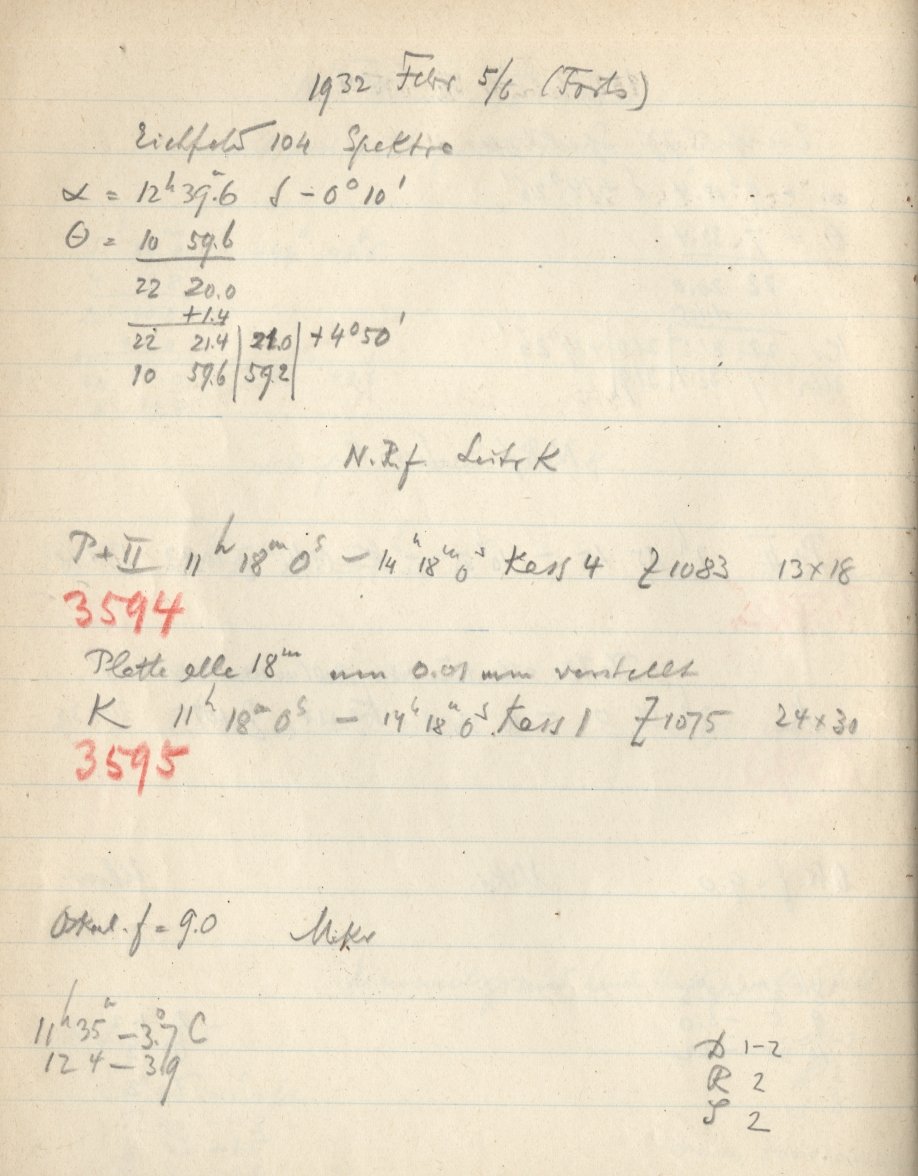 1932 Febr 5/6 (Forts)
Eichfeld 104 Spektra
α = 12ʰ 39ᵐ.6 δ – 0° 10'
θ = 10 59.6
22 20.0
+1.4
22 21.4 | 21.0 | + 4° 50'
10 59.6 | 59.2 |
N.R.f. Leitr K
P + II 11ʰ 18ᵐ 0ˢ – 14ʰ 18ᵐ 0ˢ Kass 4 Z 1083 13×18
3594
Platte alle 18ᵐ um 0.01 mm verstellt
K 11ʰ 18ᵐ 0ˢ – 14ʰ 18ᵐ 0ˢ Kass 1 Z 1075 24×30
3595
f = 9.0 Mikr
11ʰ 35ᵐ – 3.°7 C
12 4 – 3.9
D 1–2
R 2
S 2